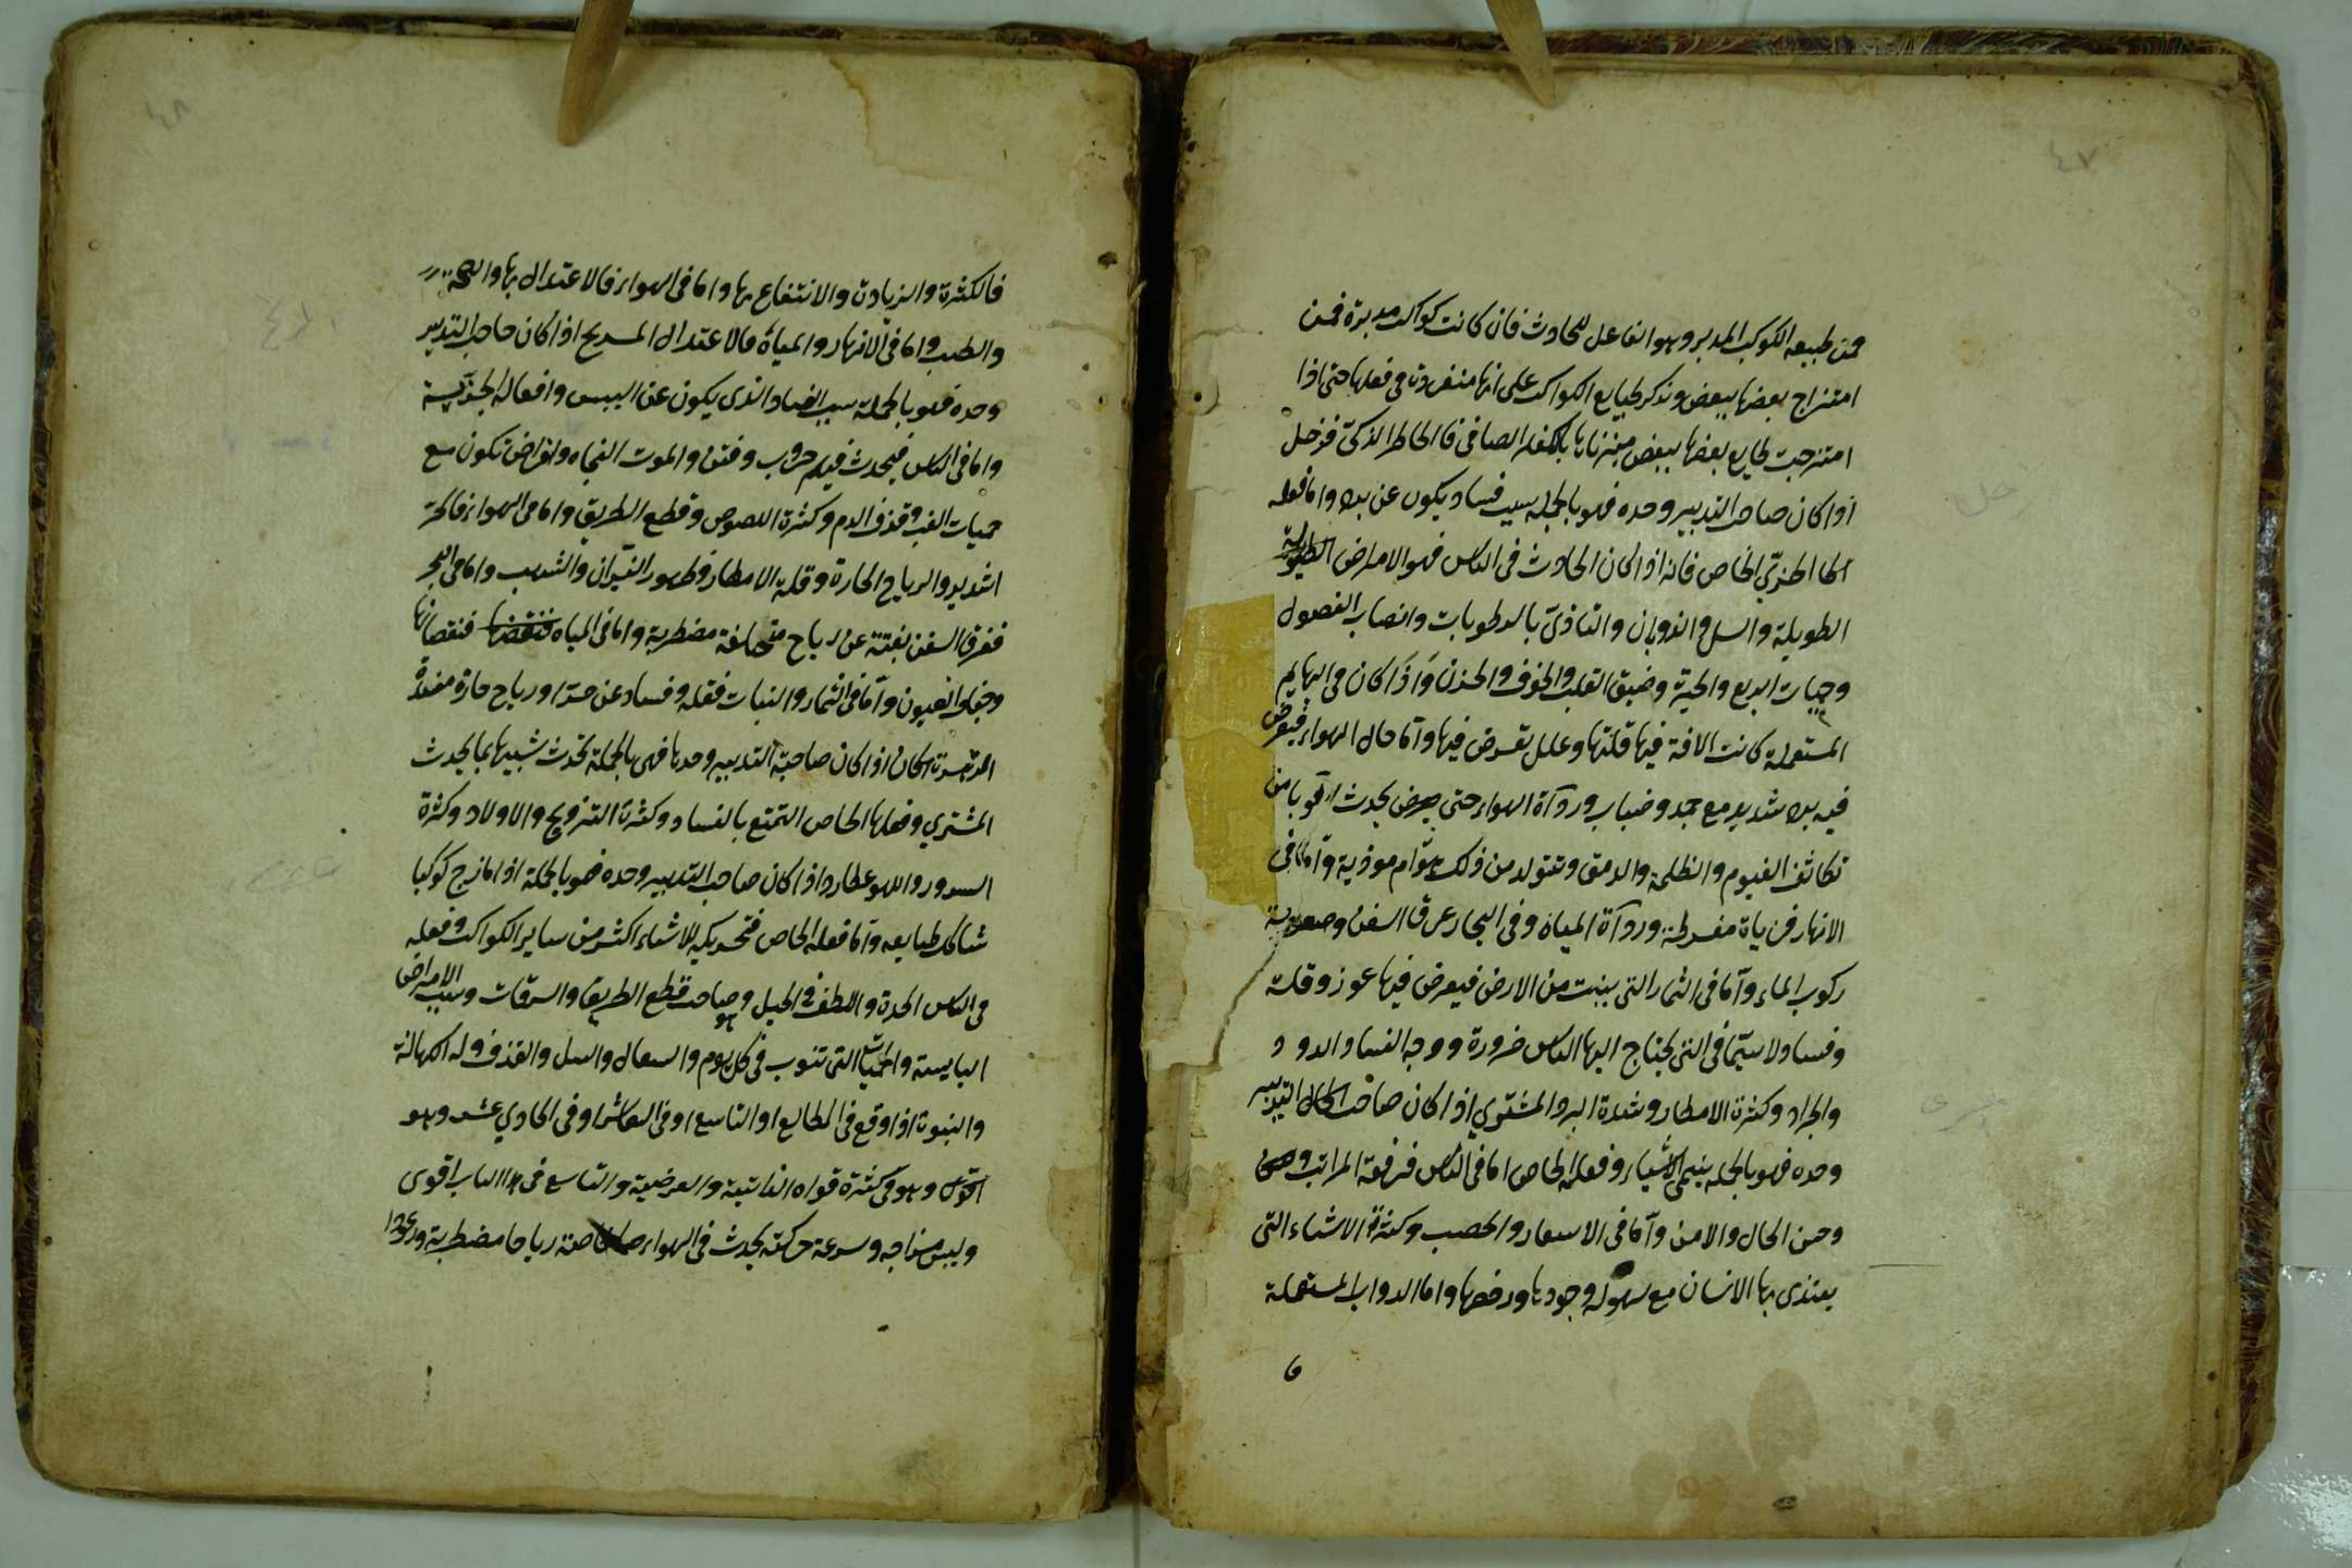 ٤٧
فمن طبيعه الكوكب المدبر وهو الفاعل للحادث فان كانت كواكب مدبرة فمن
امتزاج بعضها ببعض ونذكر طبايع الكواكب على انها منفردة في فعلها حتى اذا
امتزجت طبايع بعضها ببعض الصافي الخاطر الذكي فزحل
اذا كان صاحب التدبير وحده فهو بالجمله سبب فساد يكون عن برد واما فعله
الجزئي الخاص فانه اذا كان الحادث في الناس فهو الامراض
الطويلة والسل والذوبان والتاذي بالرطوبات وانصاب الفضول
وحميات الربع والحيرة وضيق القلب والخوف والحزن واذا كان في البهايم
المستعملة كانت الافة فيها قلتها وعلل تعرض فيها واما حال الهواء فيعرض
فيه برد شديد مع جمد وضباب ورداة الهواء حتى يحدث من
تكاثف الغيوم والظلمة والدمق وتتولد من ذلك هوام موذية واما في
الانهار فزيادة مفرطة ورداة المياه وفي البحار غرق السفن وصعوبة
ركوب الماء واما في الثمار التي ينبت من الارض فيعرض فيها عوز وقلة
وفساد ولاسيما في التي يحتاج اليها الناس ضرورة ووجه الفساد الدود
والجراد وكثرة الامطار وشدة البرد المشتري اذا كان صاحب التدبير
وحده فهو بالجمله ينمي الاشياء وفعله الخاص اما في الناس فرفعة المراتب
وحسن الحال والامن واما في الاسعار والخصب وكثرة الاشياء التي
يغتذى بها الانسان مع سهولة وجودها ورخصها واما الدواب المستعملة
٤٨
فالكثرة والزيادة والانتفاع بها واما في الهواء فالاعتدال بها والصحة
والطيب واما في الانهار والمياه فالاعتدال المريخ اذا كان صاحب التدبير
وحده فهو بالجملة سبب الفساد الذي يكون عن اليبس وافعاله الجزئية
واما في الناس فيحدث فيهم حروب وفتن والموت الفجاه وامراض تكون مع
حميات الغب وقذف الدم وكثرة اللصوص وقطع الطريق واما في الهواء فالحر
الشديد والرياح الحارة وقلة الامطار وظهور النيران والشهب واما في البحر
فغرق السفن بغتة عن رياح مختلفة مضطربة واما في المياه فنقصانها
وجفاف العيون واما في الثمار والنبات فقلة وفساد عن حر ورياح حارة مفسدة
الزهرة اذا كان صاحبة التدبير وحدها فهي بالجملة تحدث شبيها بما يحدث
المشتري وفعلها الخاص التمتع بالنساء وكثرة التزويج والاولاد وكثرة
السرور واللهو عطارد اذا كان صاحب التدبير وحده فهو بالجملة اذا مازج كوكبا
شاكل طبايعه واما فعله الخاص فتحريكه للاشياء اكثر من ساير الكواكب وفعله
في الناس الحدة واللطف في الحيل وهو صاحب قطع الطريق والسرقات وسبب الامراض
اليابسة والحميات التي تنوب في كل يوم والسعال والسل والقذف وله الكهانة
والنبوة اذا وقع في الطالع او التاسع او في العاشر او في الحادي عشر وهو
وهو في كثرة قواه الذاتية والعرضية والتاسع في هذا الباب اقوى
وليبس مزاجه وسرعة حركته يحدث في الهواء خاصة رياحا مضطربة ورعودا